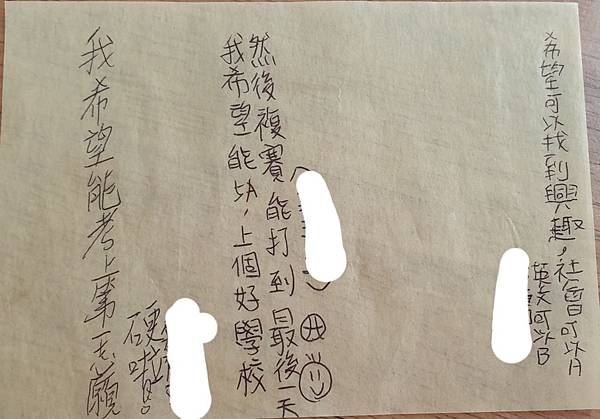 希望可以找到興趣，社會可以A
英文可以B
我希望能5A，上個好學校
然後複賽能打到最後一天
我希望能考上第一志願
硬啦!